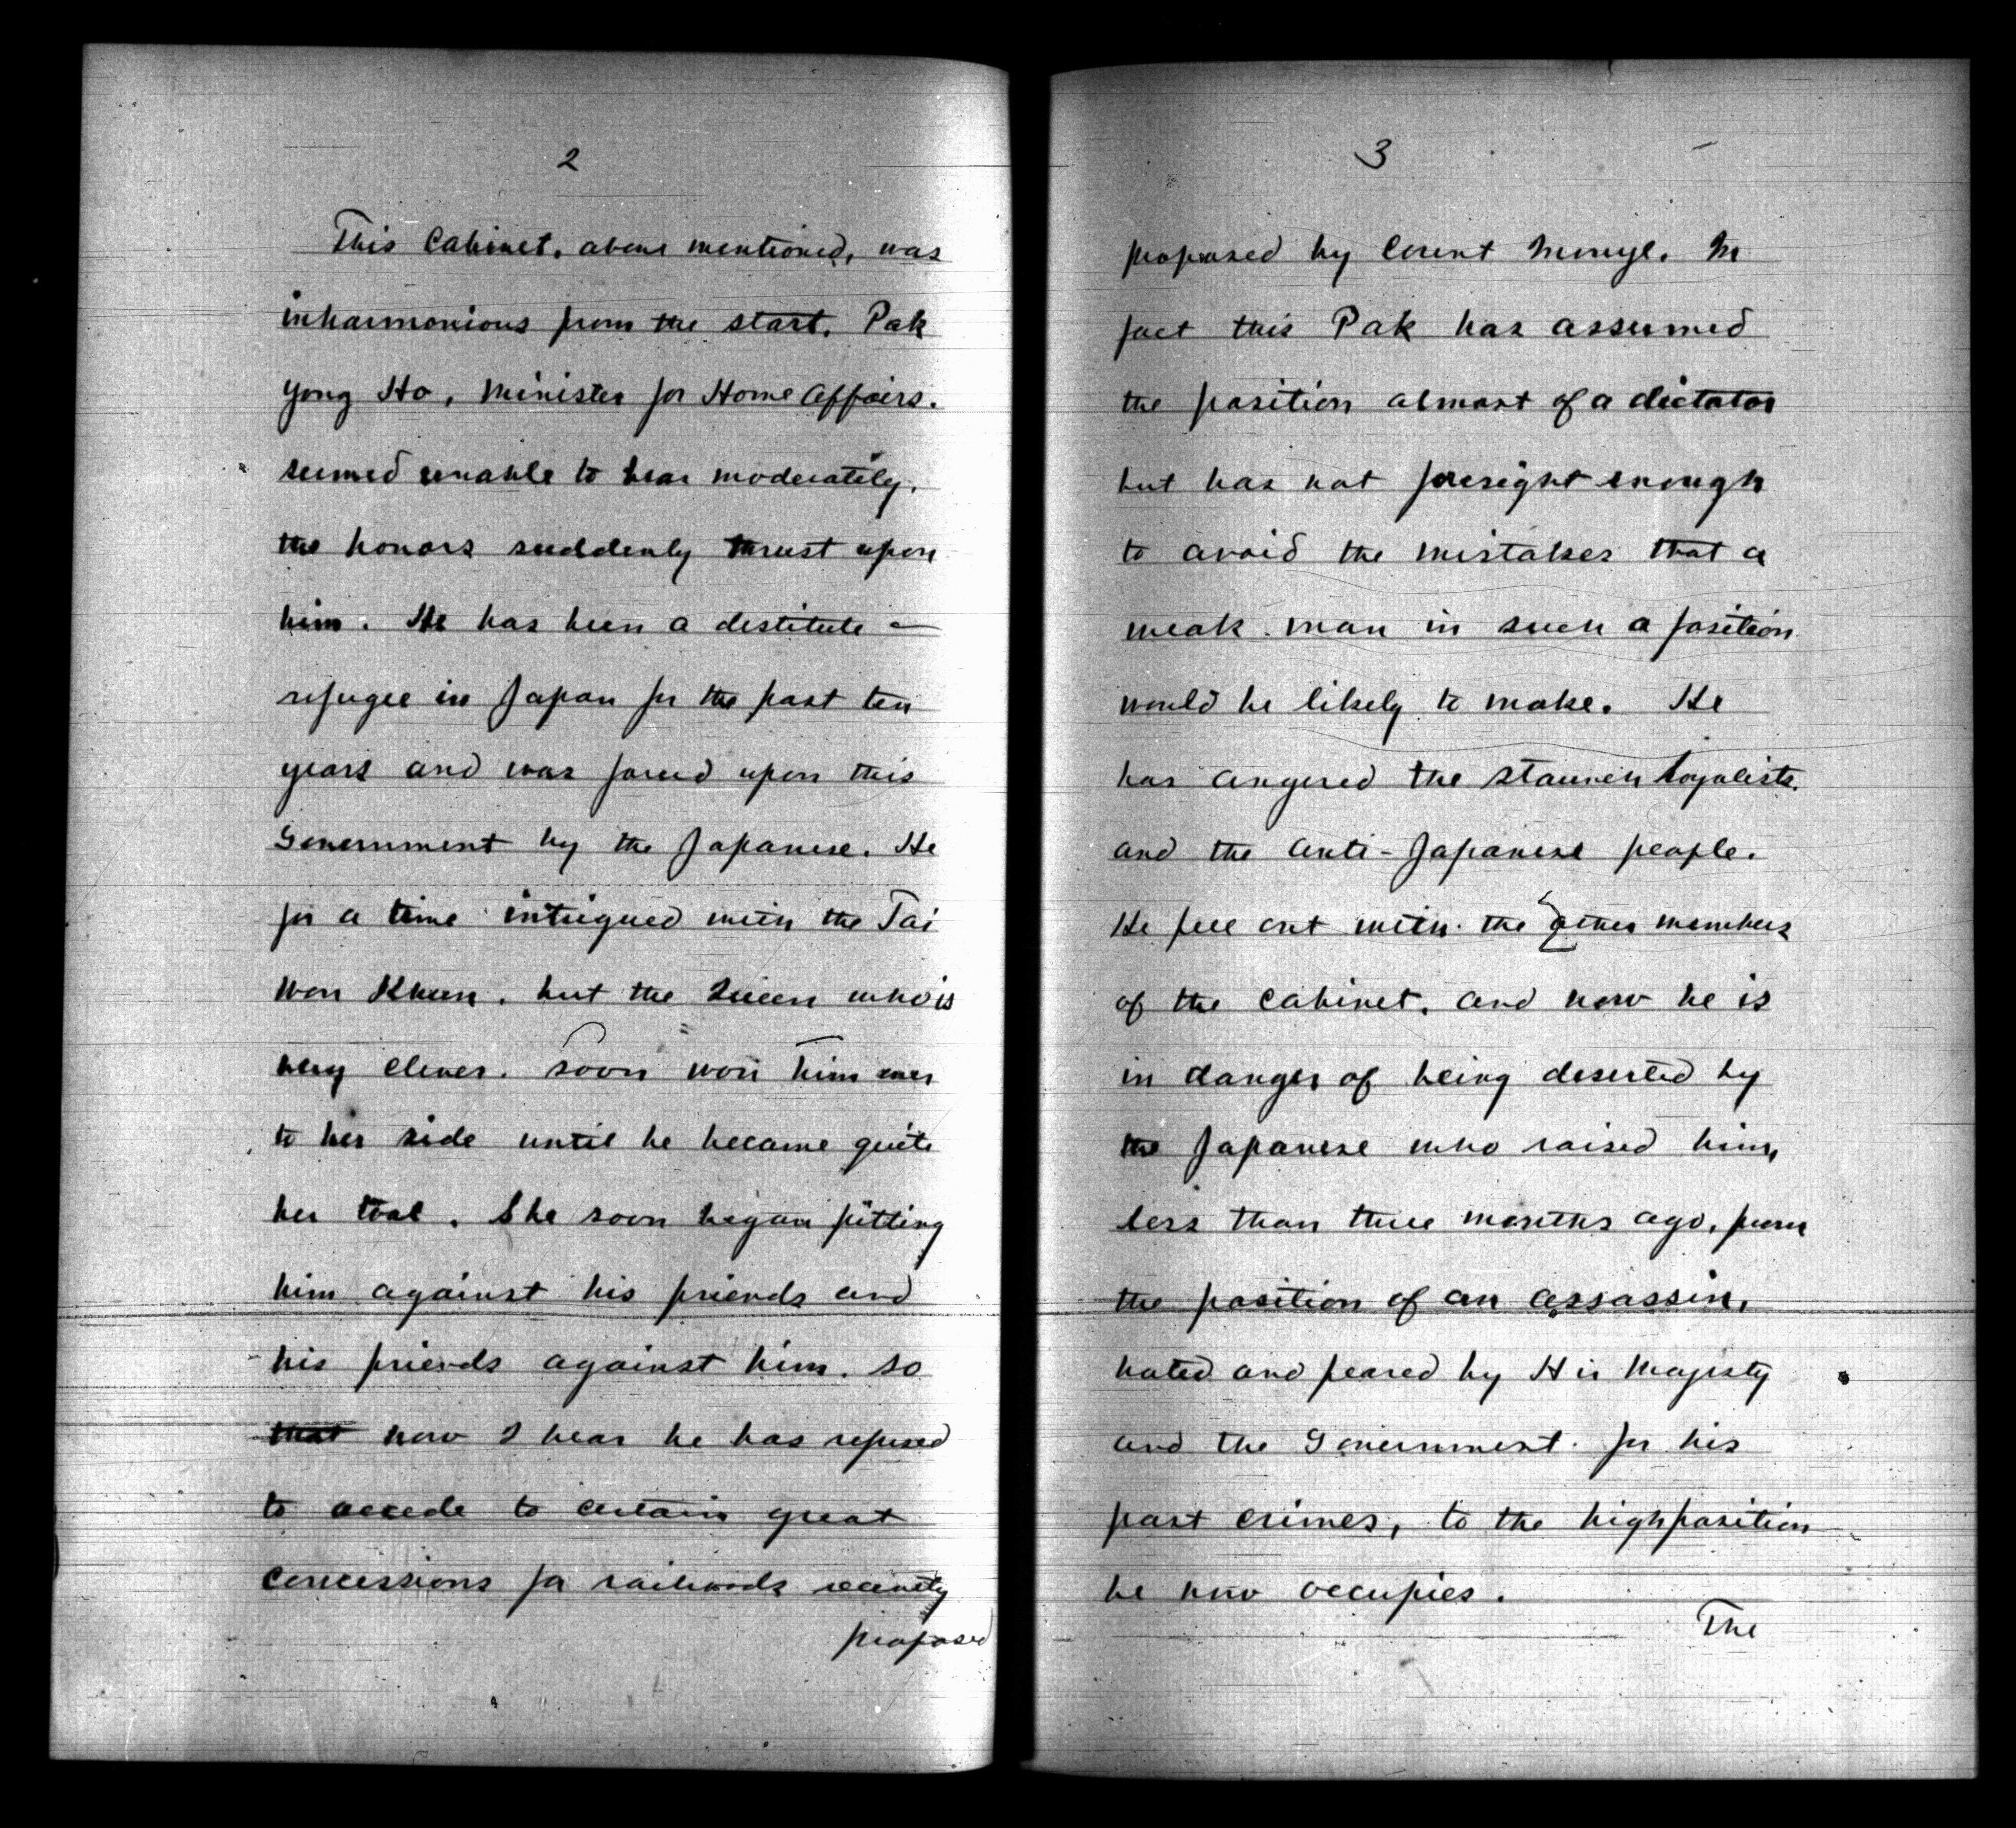 2
This Cabinet, above mentioned, was
inharmonious from the start. Pak
Yong Ho, Minister for Home Affairs,
seemed unable to bear moderately,
the honors suddenly thrust upon
him. He has been a destitute
refugee in Japan for the past ten
years and was forced upon this
Government by the Japanese. He
for a time intrigued with the Tai
Won Khun, but the Queen who is
very clever, soon won him over
to her side until he became quite
her tool. She soon began pitting
him against his friends and
his friends against him, so
that now I hear he has refused
to accede to certain great
concessions for railroads recently
proposed
3
proposed by Count Inouye. In
fact this Pak has assumed
the position almost of a dictator
but has not foresight enough
to avoid the mistakes that a
weak man in such a position
would be likely to make. He
has angered the staunch loyalists,
and the anti-Japanese people.
He fell out with the other members
of the cabinet, and now he is
in danger of being deserted by
the Japanese who raised him,
less than three months ago, from
the position of an assassin,
hated and feared by His Majesty
and the Government for his
past crimes, to the high position
he now occupies.
The